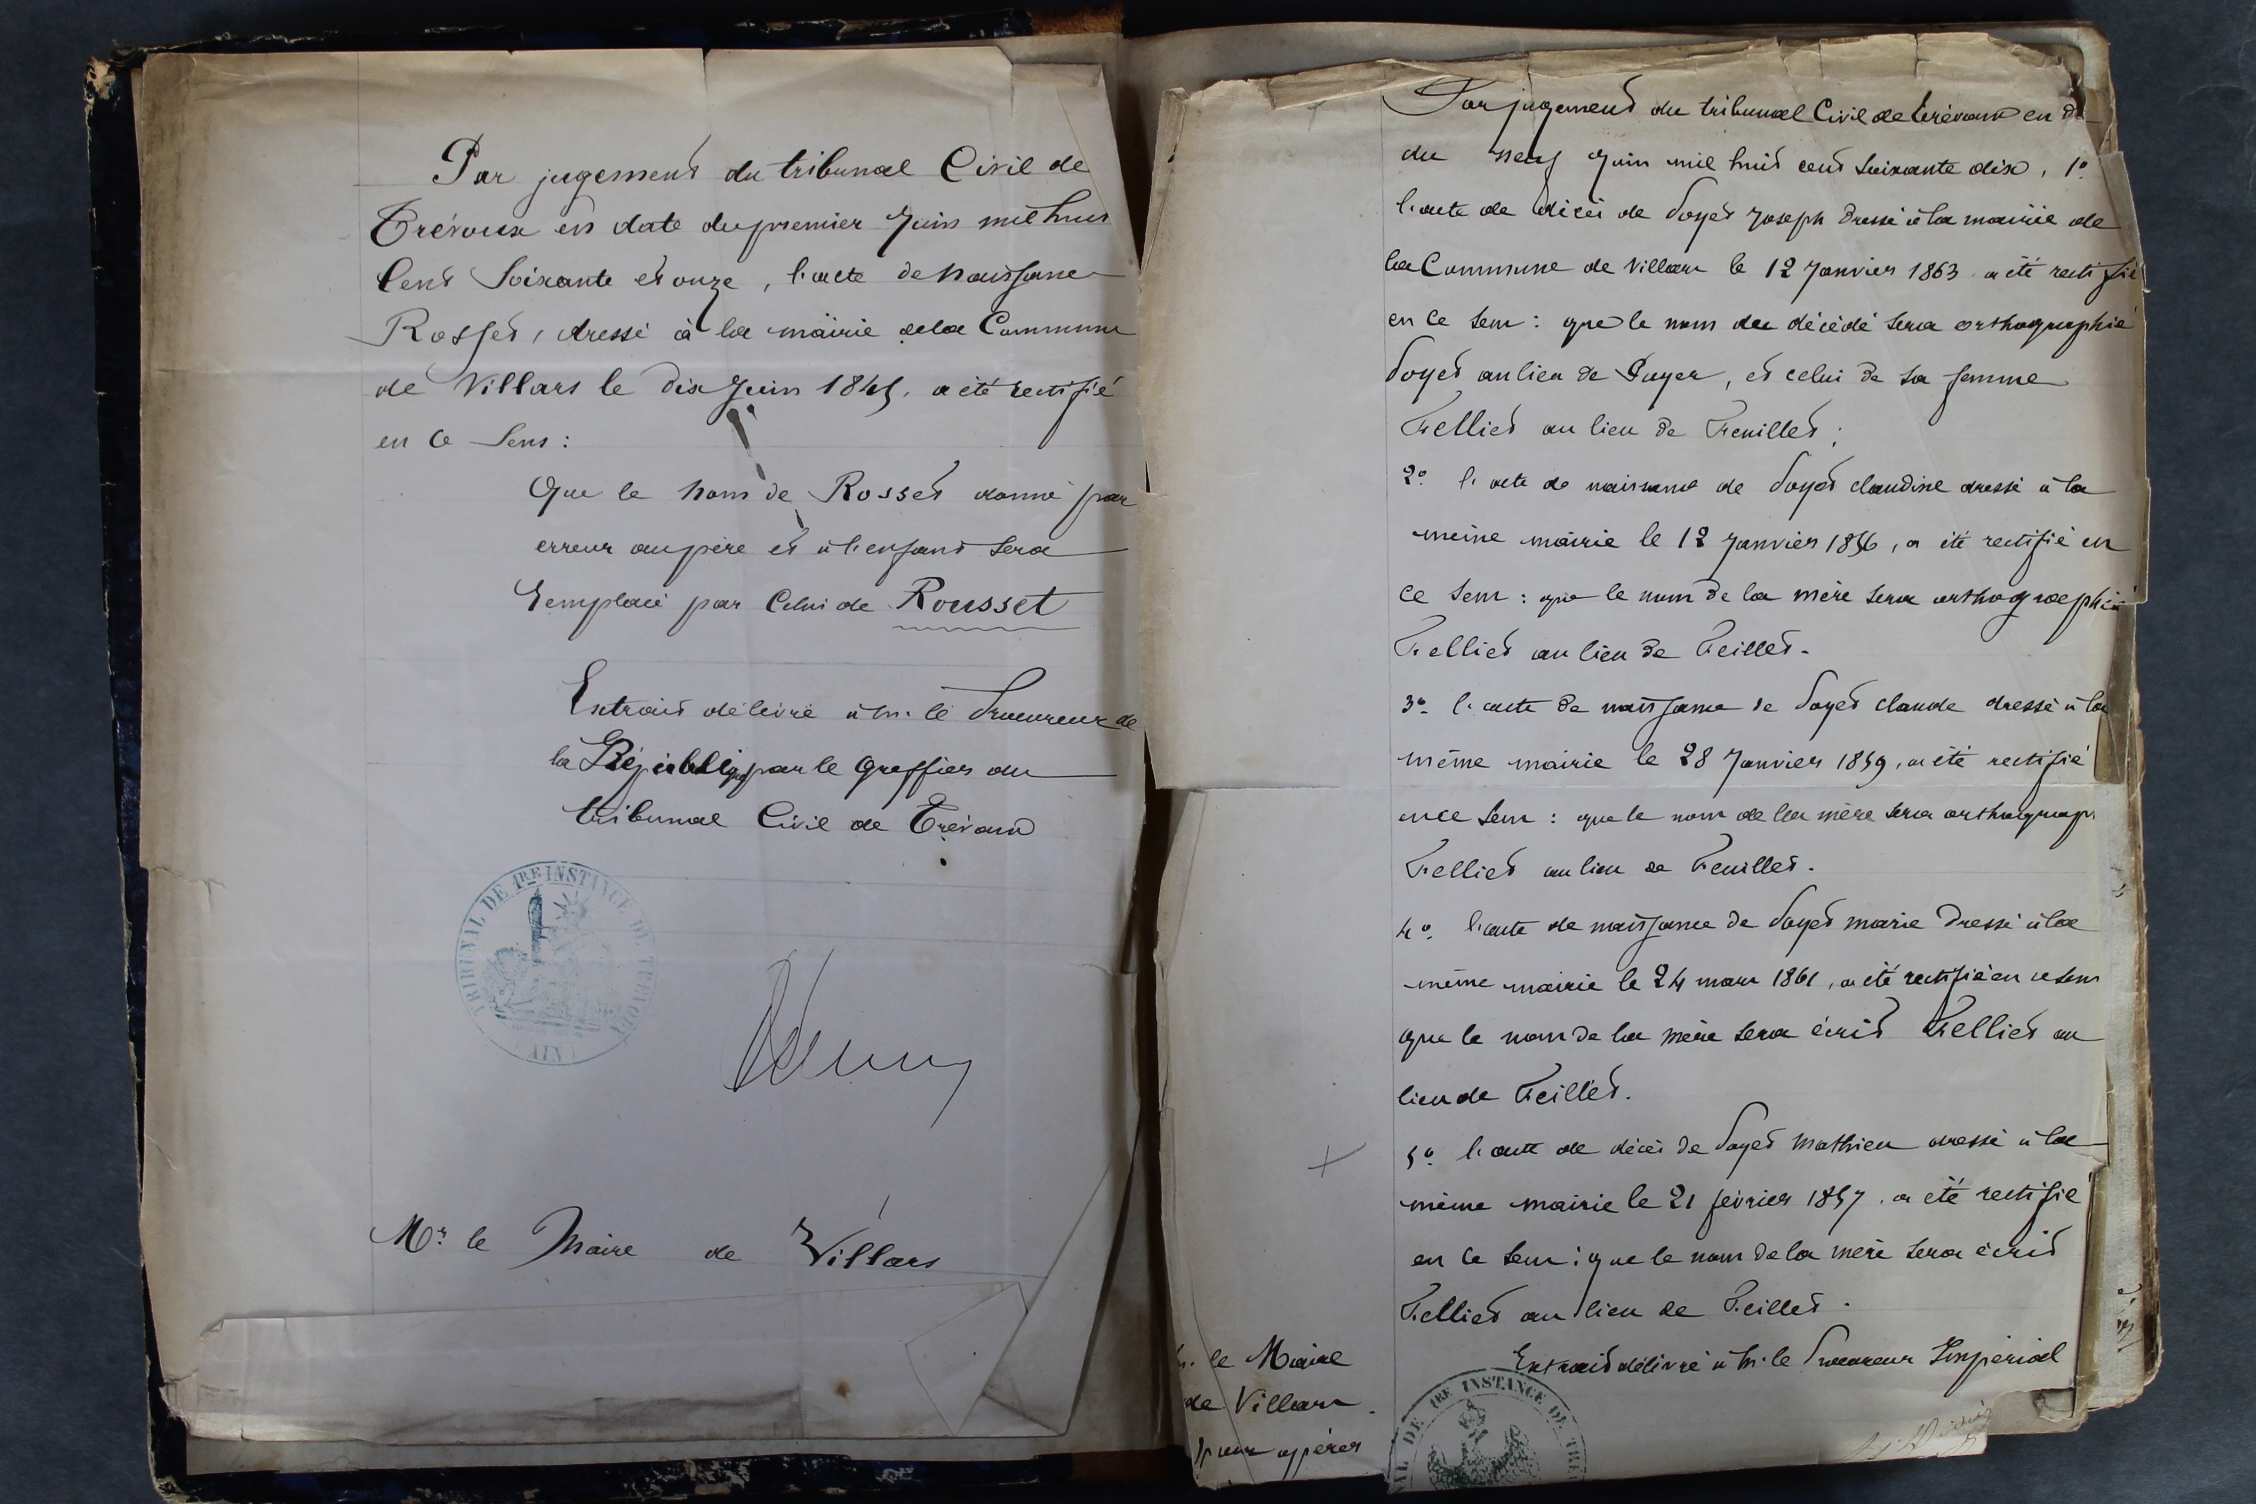 Par jugement du tribunal Civil de
Trévoux en date du premier Juin mil huit
Cent Soixante et onze, l'acte de naissance
Rosset, dressé à la mairie de la Commune
de Villars le dix Juin 1845, a été rectifié
en ce sens :
Que le nom de Rosset donné par
erreur au père et à l'enfant sera
Remplacé par Celui de Rousset
Extrait délivré à Mr. le Procureur de
la République par le Greffier du
tribunal Civil de Trévoux
TRIBUNAL DE 1RE INSTANCE DE TREVOUX
(AIN)
Mr. le Maire de Villars
Par jugement du tribunal Civil de Trévoux en d
du neuf Juin mil huit cent soixante dix, 1º
l'acte de décès de Poyet Joseph dressé à la mairie de
la Commune de Villars le 12 Janvier 1863 a été rectifié
en ce sens : que le nom du décédé sera orthographié
Poyet au lieu de Puyer, et celui de sa femme
Felliet au lieu de Feuillet ;
2º l'acte de naissance de Poyet claudine dressé à la
même mairie le 12 Janvier 1856, a été rectifié en
ce sens : que le nom de la mère sera orthographié
Felliet au lieu de Feillet.
3º l'acte de naissance de Poyet claude dressé à la
même mairie le 28 Janvier 1859, a été rectifié
en ce sens : que le nom de la mère sera orthograph
Felliet au lieu de Feuillet.
4º l'acte de naissance de Poyet marie dressé à la
même mairie le 24 mars 1861, a été rectifié en ce sens
que le nom de la mère sera écrit Felliet au
lieu de Feillet.
5º l'acte de décès de Poyet Mathieu dressé à la
même mairie le 21 février 1857. a été rectifié
en ce sens : que le nom de la mère sera écrit
Felliet au lieu de Feillet.
Extrait délivré à Mr. le Procureur Impérial
M. le Maire
de Villars
pour opérer
AL DE 1RE INSTANCE DE TRE